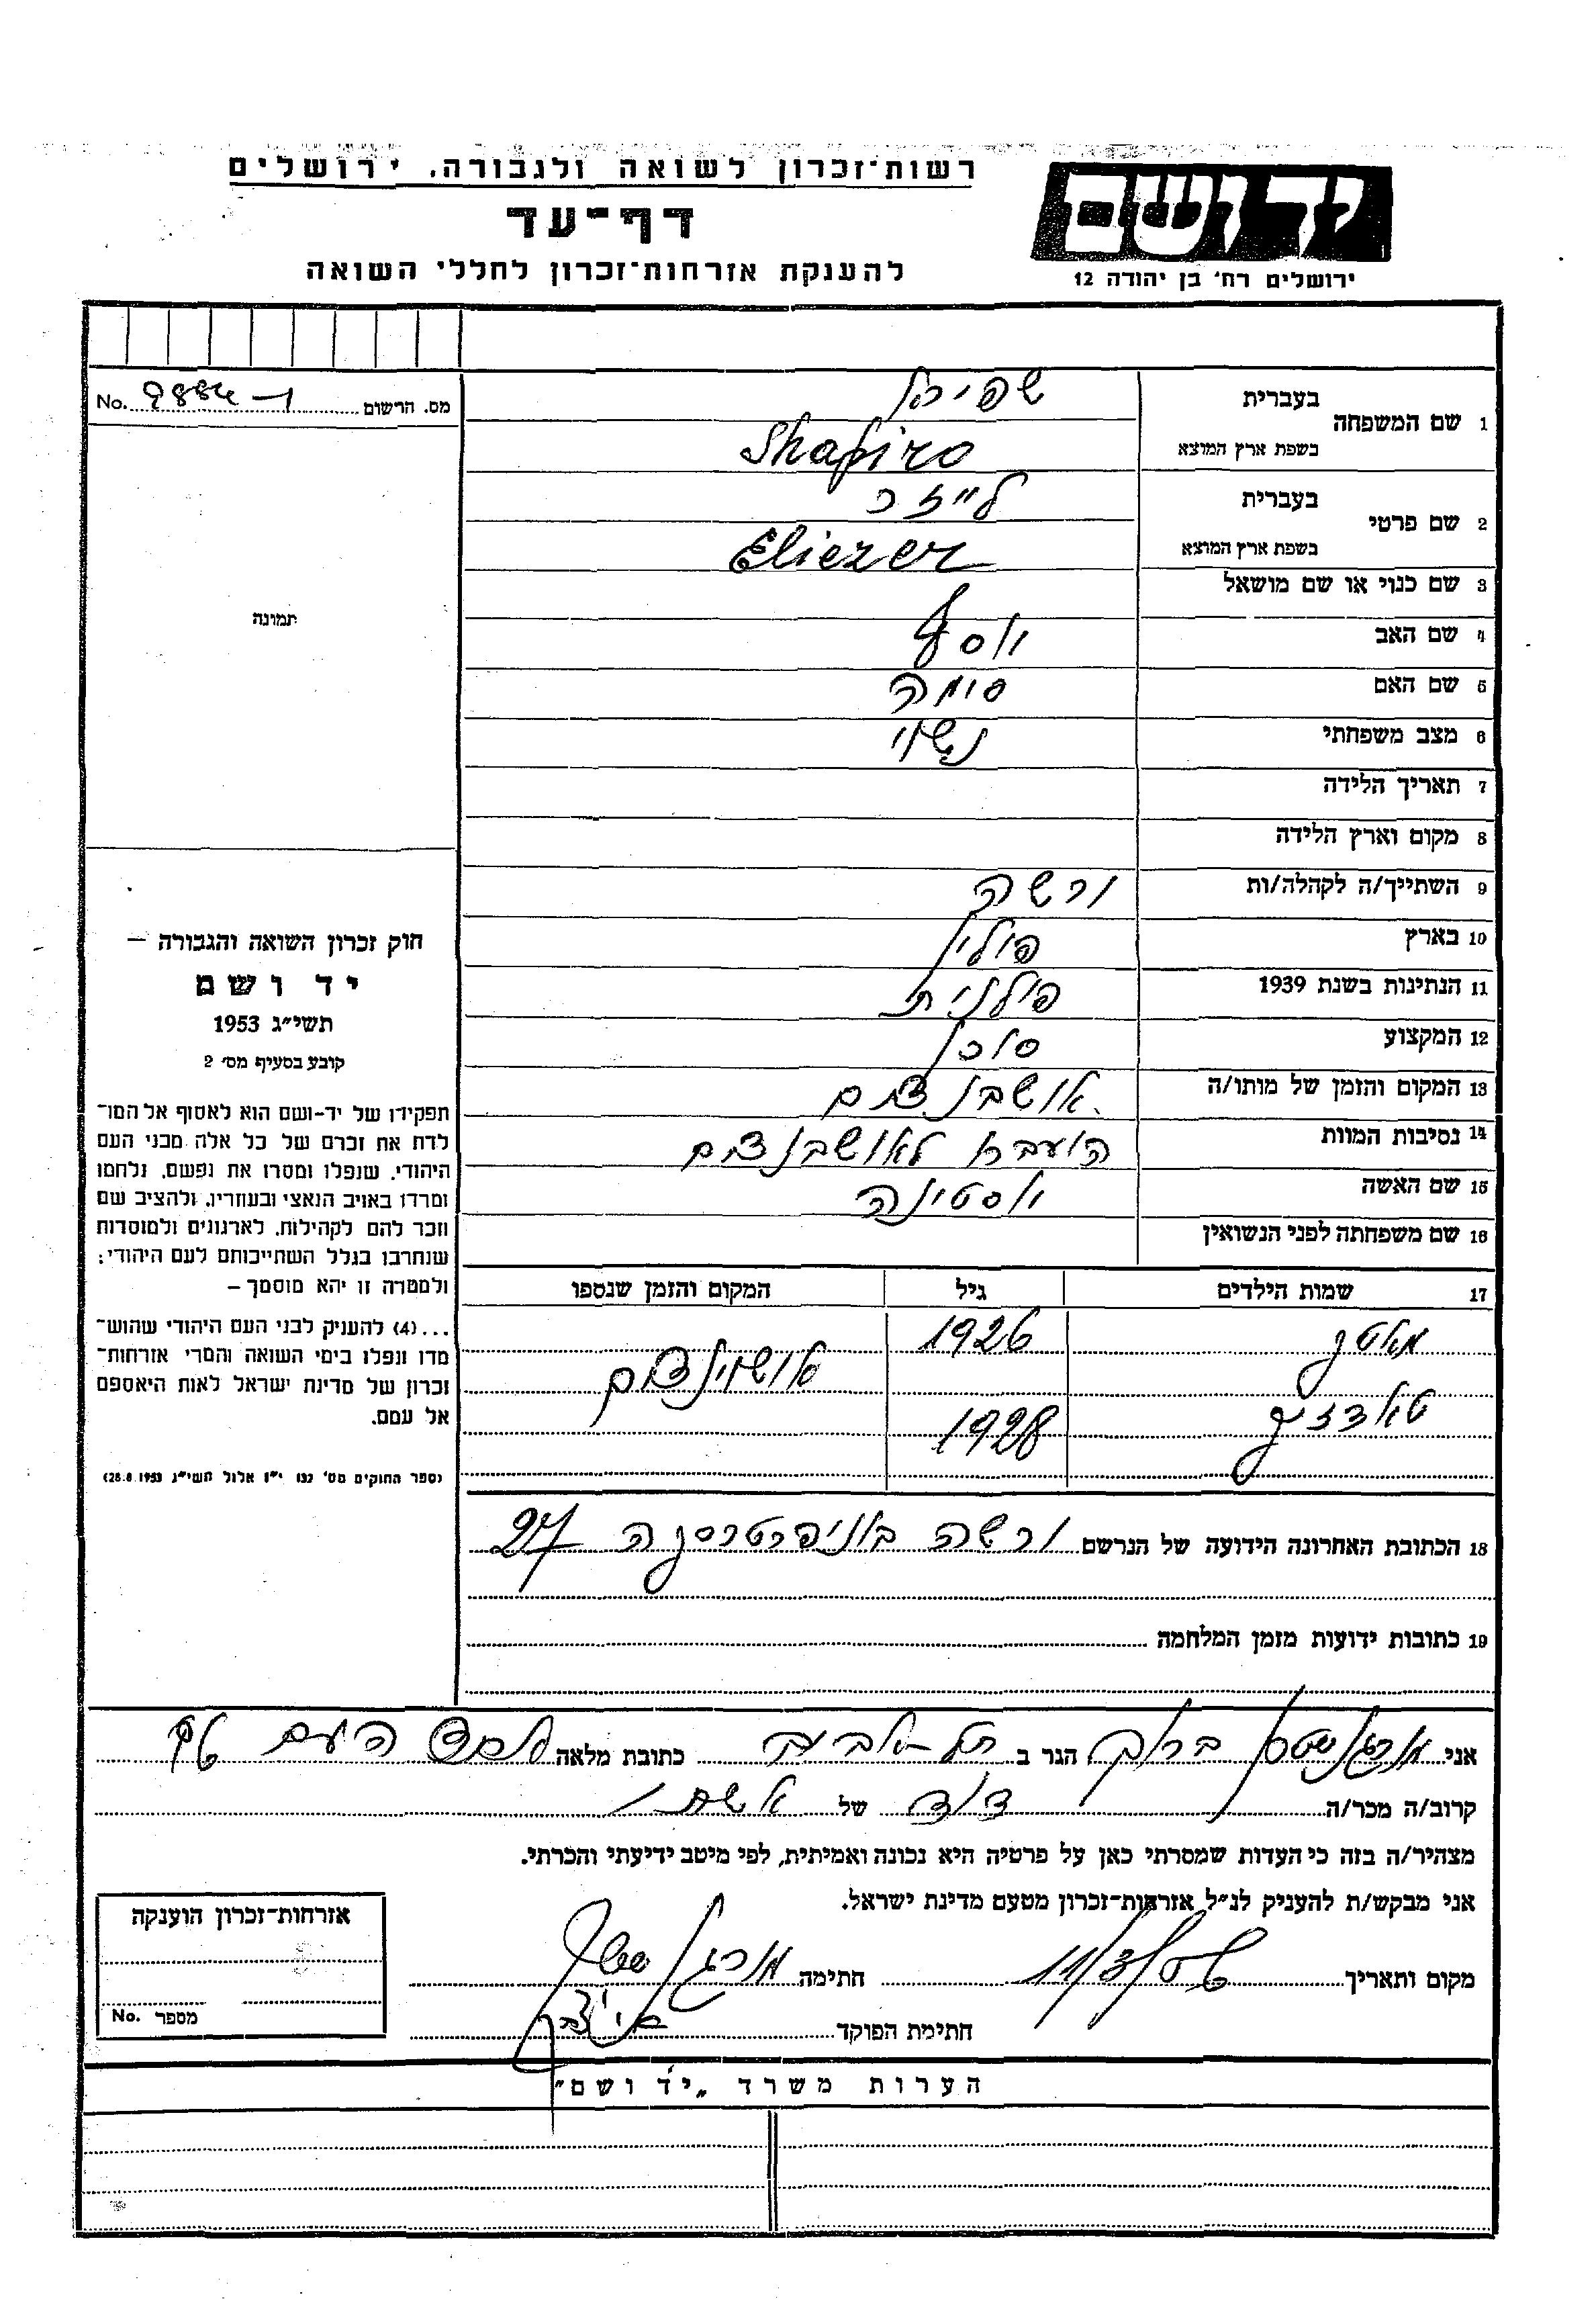 רשות־זכרון לשואה ולגבורה, ירושלים
דף־עד
להענקת אזרחות־זכרון לחללי השואה
יד ושם
ירושלים רח' בן יהודה 12
מס. הרשום No.
1 שם המשפחה
בעברית
בשפת ארץ המוצא Shapiro
2 שם פרטי
בעברית לייזר
בשפת ארץ המוצא Eliezer
3 שם כנוי או שם מושאל
4 שם האב יוסף
5 שם האם סימה
6 מצב משפחתי נשוי
7 תאריך הלידה
8 מקום וארץ הלידה
9 השתייך/ה לקהלה/ות ורשה
10 בארץ פולין
11 הנתינות בשנת 1939 פולנית
12 המקצוע סוכן
13 המקום והזמן של מותו/ה אושבנצים
14 נסיבות המוות הועבר לאושבנצים
15 שם האשה יוסטינה
16 שם משפחתה לפני הנשואין
17 שמות הילדים גיל המקום והזמן שנספו
1926
אושוינצים
1928
18 הכתובת האחרונה הידועה של הנרשם ורשה בוניפרטרסקה 27
19 כתובות ידועות מזמן המלחמה
תמונה
חוק זכרון השואה והגבורה –
יד ושם
תשי״ג 1953
קובע בסעיף מס׳ 2
תפקידו של יד-ושם הוא לאסוף אל המו־
לדת את זכרם של כל אלה מבני העם
היהודי, שנפלו ומסרו את נפשם, נלחמו
ומרדו באויב הנאצי ובעוזריו, ולהציב שם
וזכר להם לקהילות, לארגונים ולמוסדות
שנחרבו בגלל השתייכותם לעם היהודי;
ולמטרה זו יהא מוסמך –
...(4) להעניק לבני העם היהודי שהוש־
מדו ונפלו בימי השואה והמרי אזרחות־
זכרון של מדינת ישראל לאות היאספם
אל עמם.
(ספר החוקים מס׳ 132 י״ז אלול תשי״ג 28.8.1953)
אני הגר ב תל אביב כתובת מלאה אחד העם
קרוב/ה מכר/ה דוד של אשתו
מצהיר/ה בזה כי העדות שמסרתי כאן על פרטיה היא נכונה ואמיתית, לפי מיטב ידיעתי והכרתי.
אני מבקש/ת להעניק לנ״ל אזרחות־זכרון מטעם מדינת ישראל.
מקום ותאריך חתימה
חתימת הפוקד
אזרחות־זכרון הוענקה
מספר No.
הערות משרד „יד ושם״